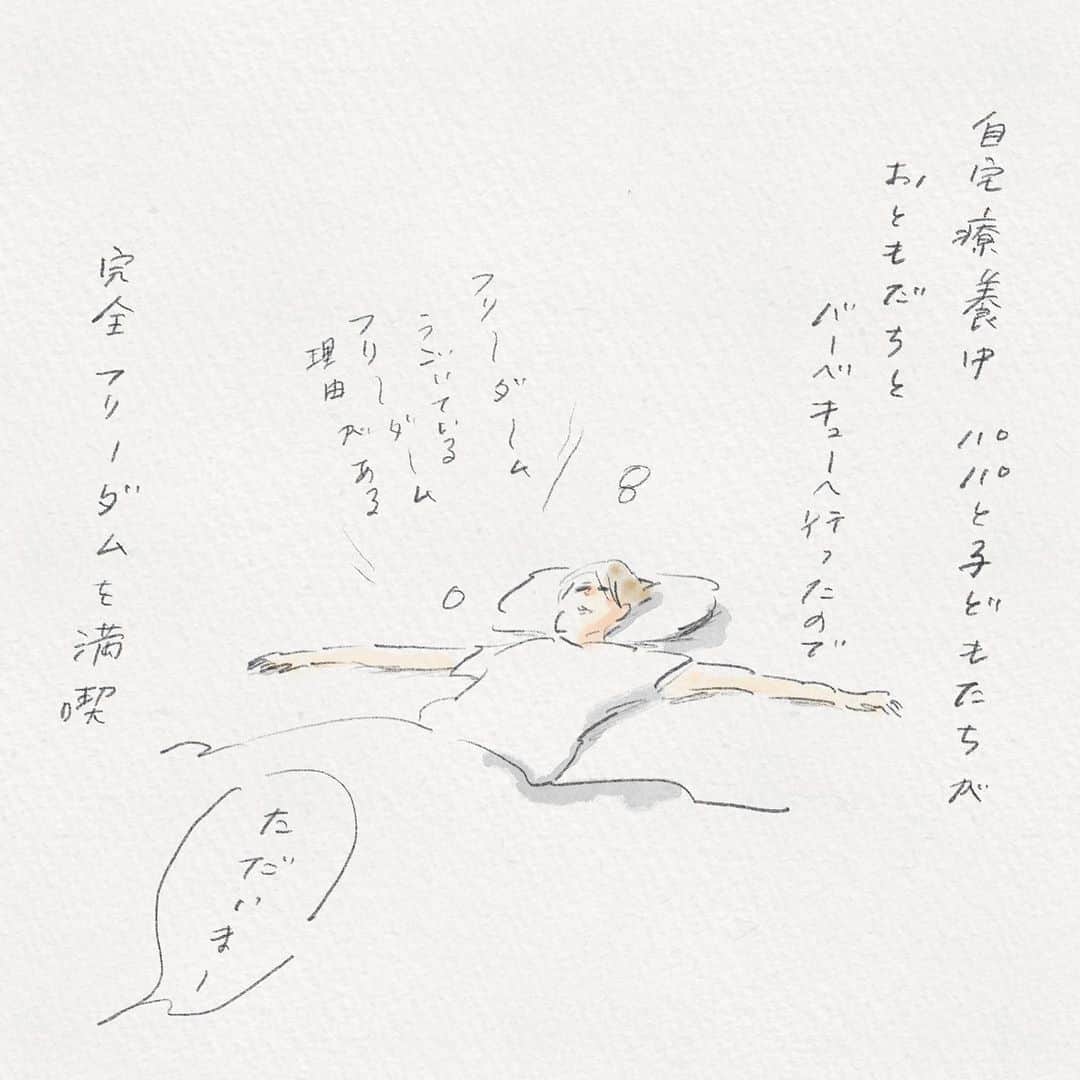 自宅療養中 パパと子どもたちが
おともだちと
バーベキューへ行ったので
フリーダーム
うごいている
フリーダーム
理由がある
完全フリーダムを満喫
ただいまー